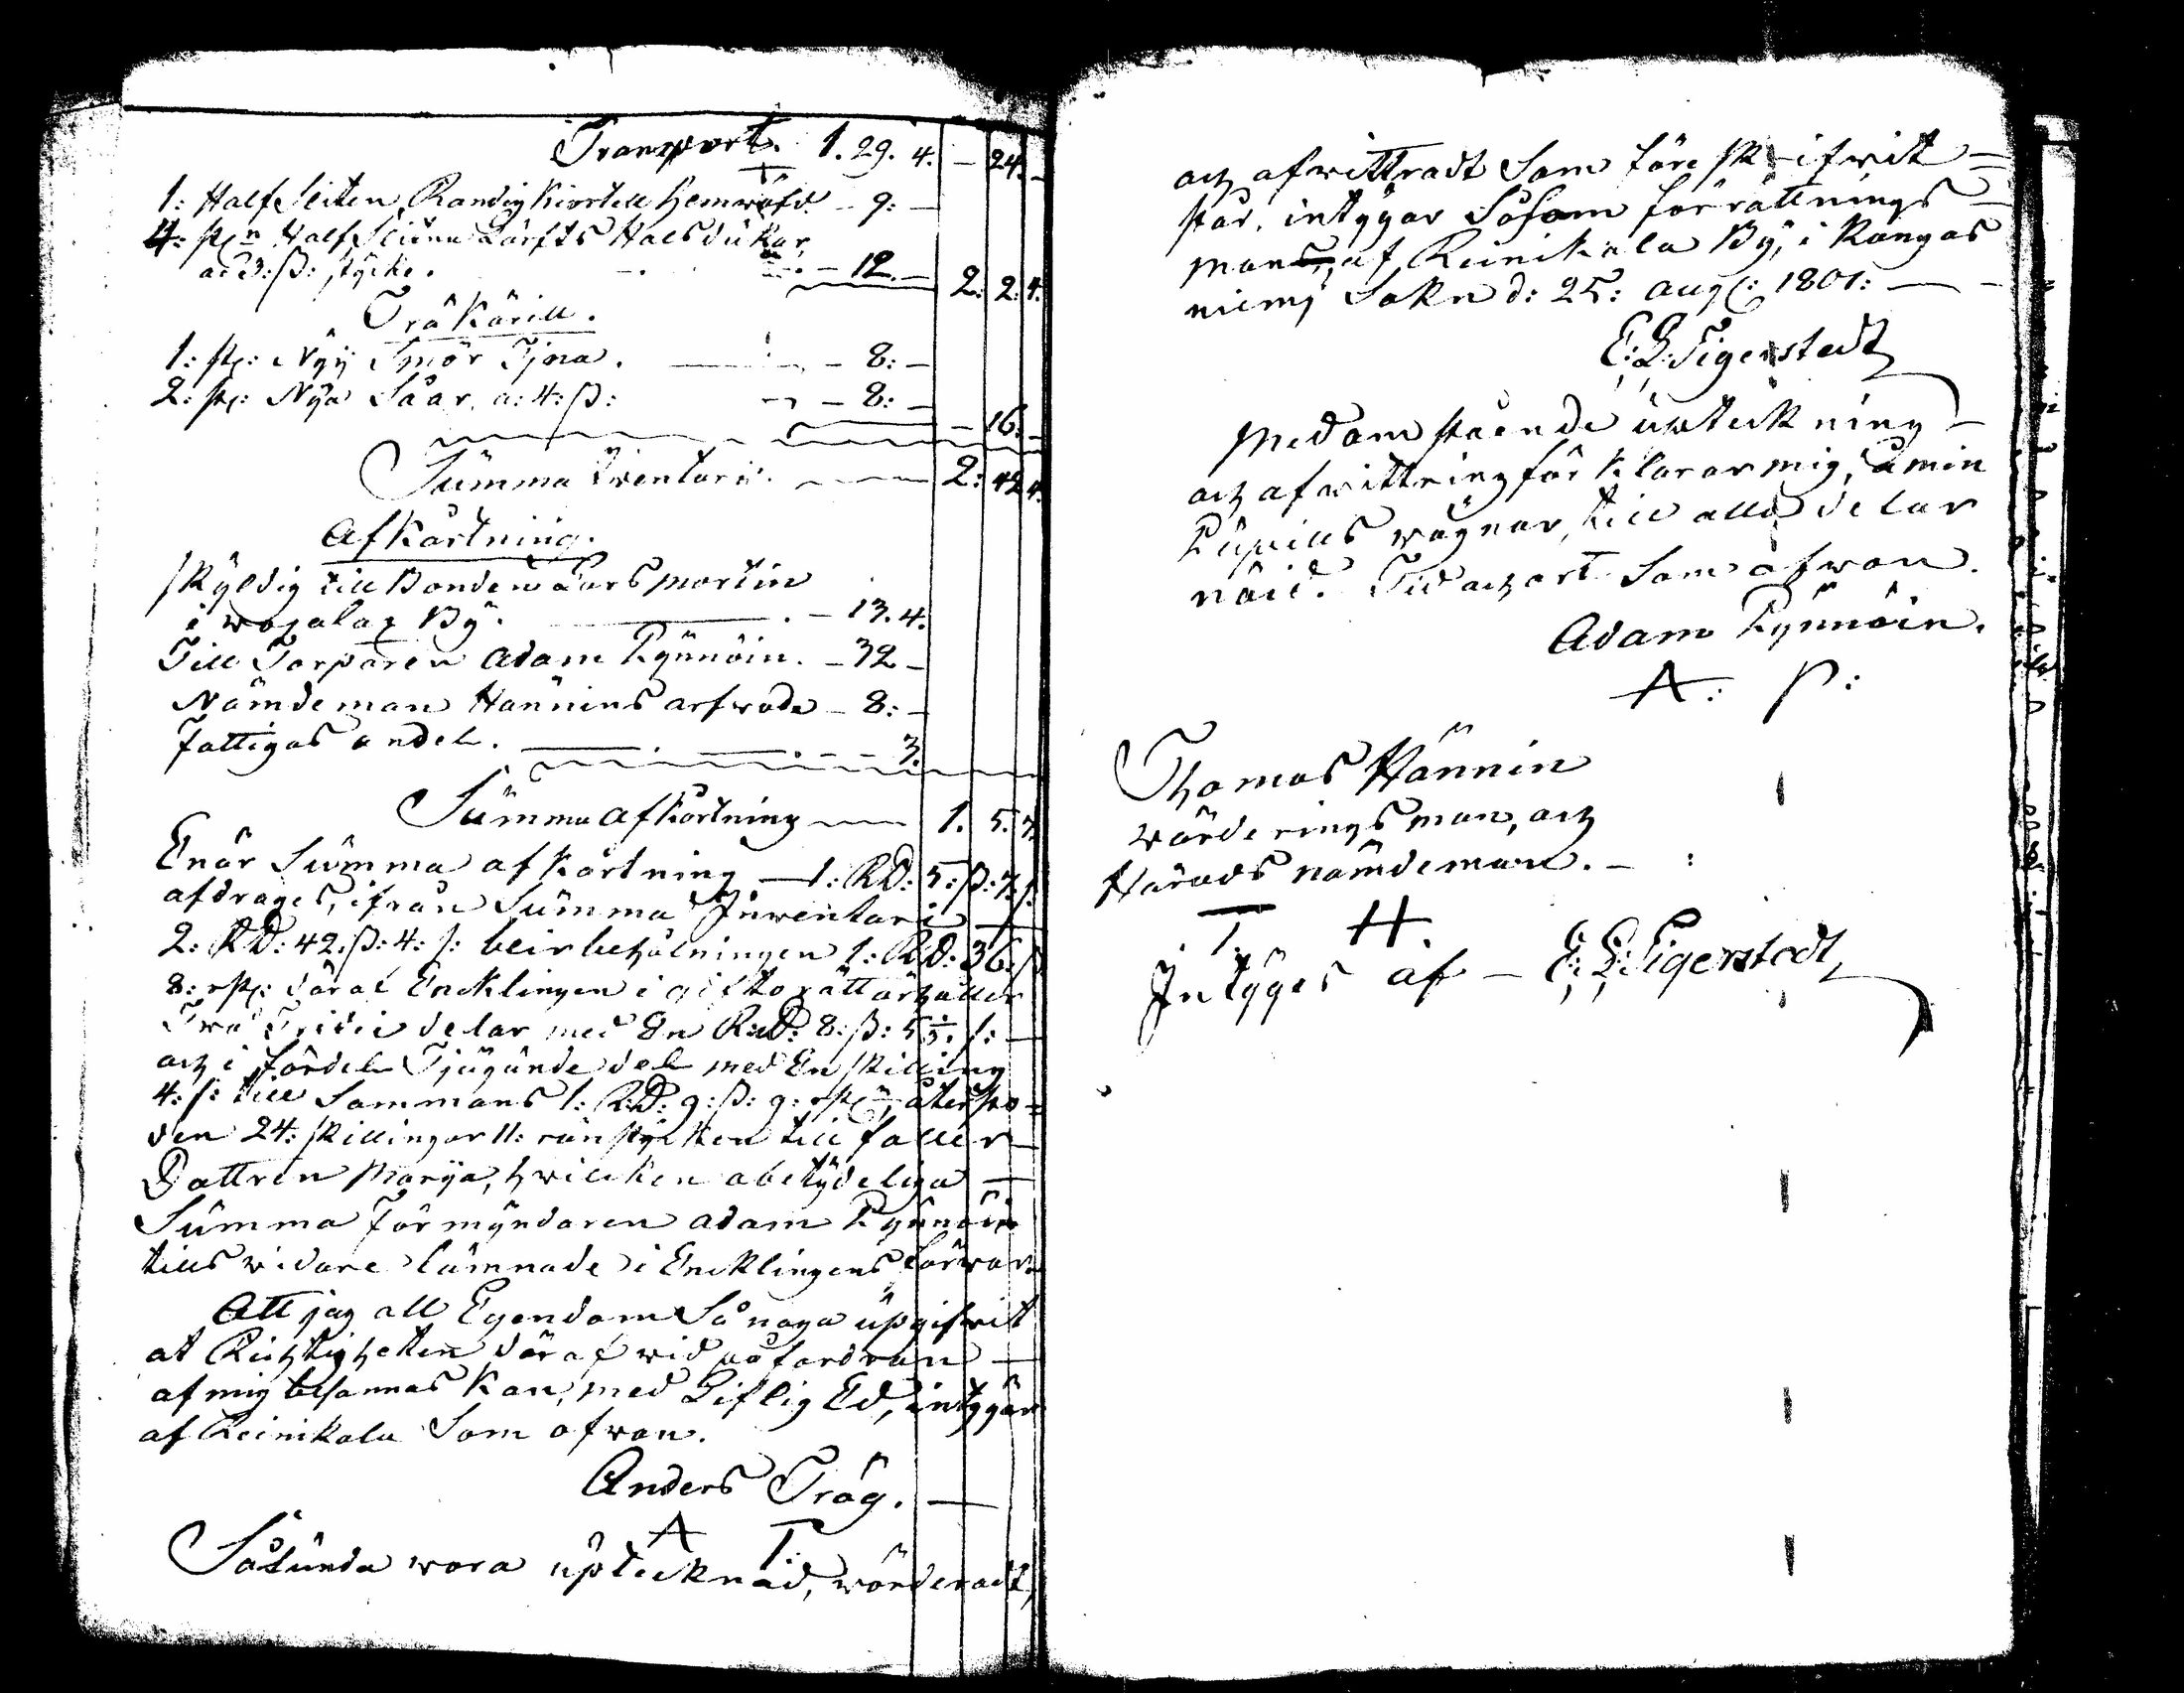 Transport. 1. 29. 4. — 24. —
1: Half Sliten Randig Kiortell Hemwäfd. — 9: —
4: st:n Half Slitna Lärfts Halsdükar,
a 3: ß: stÿcke. — 12. — 2. 2. 4.
Träkärill.
1: st: Nÿÿ Smör Tjna. — 8: —
2: st: Nÿa Såar. a: 4: ß: — 8: —
— 16. —
Sümma Iwentarii. 2: 42 4.
Afkårtning.
skÿldig till Bonden Lars Mortin
i By. — 13. 4.
Till Torparen Adam Pÿnnöin. — 32 —
Nämdeman Hännins arfwode — 8: —
fattigas andel. — — 3.
Sümma Afkortning — 1. 5. 7.
Enär Sümma afkortning — 1: RD: 5: ß: 7. s.
afdrages, ifrån Sümma Inwentarii
2: RD: 42. ß: 4: s: beir behålningen 1: RD: 36: ß
8: rst: däraf Encklingen i giftorätt ärhåller
Twå Tridie delar med En R:D: 8: ß: 5 1/3. s: —
och i fördel Tjugünde del med En skilling
4: s: till Sammans 1: R:D: 9: ß: 9: rst:, återsto=
den 24: skillingar 11: rünstÿcken till faller
Dottren Marÿa, hwilcken obetÿdeliga —
Sümma Förmÿndaren Adam Pÿnnöin
tills widare lämnade i Encklingens förwar
Att jag all Egendom Så noga üpgifwit
at Ricktigheten däraf wid påfordran —
af mig besannas Kan, med Liflig Ed, intÿgar
af Reinikala Som ofwan.
Anders Träg. —
A T:
Sålünda wara üptecknad, wärderadt,
och afwittradt Som före skrifwit =
står, intÿgar Såsom förrättnings —
Man, af Reinikala Bÿ, i Kangas
niemj Sokn d: 25: aug: 1801: — —
E: G: Tigerstedt
Med omstående üpteckning —
och afwittring förklarar mig, å min
Püpills wägnar, till alla delar
nöid. Tid och ort Som ofwan.
Adam Pÿnnöin.
A: P:
Thomas Hännin
wärderings man, och
Härads nämdeman. —
T. H.
Intÿges af — E: G: Tigerstedt